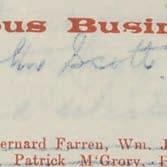 ous Busin
hn Scott
ernard Farren, Wm. 
Patrick M'Grory,